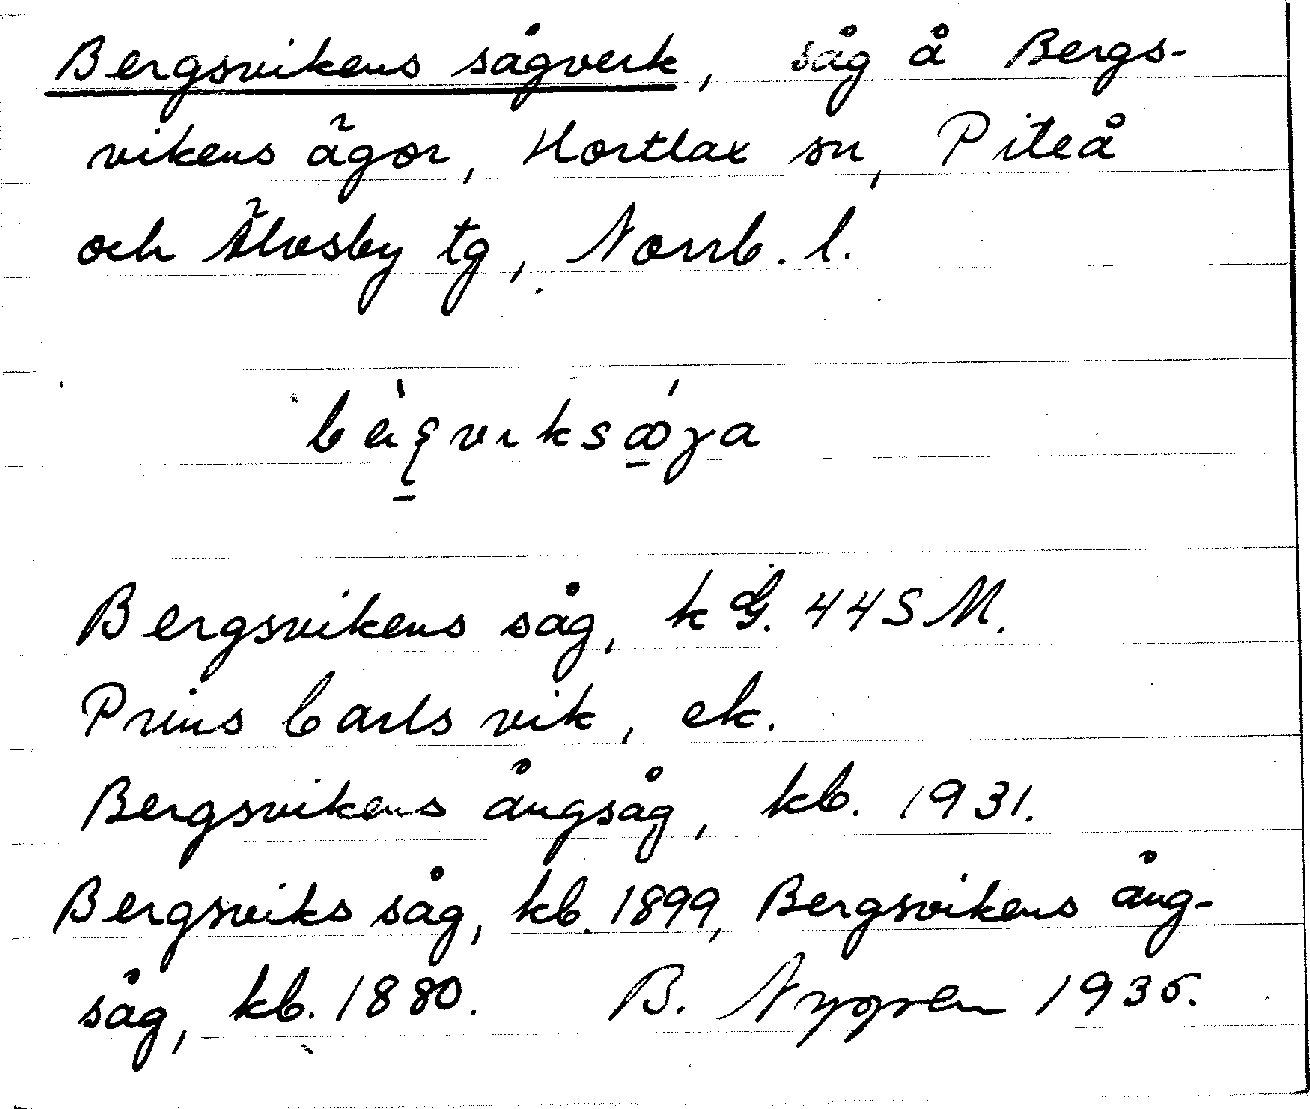 Bergsvikens sågverk, såg å Bergs-
vikens ägor, Hortlax sn, Piteå
och Älvsby tg, Norrb. l.
Bergsvikens såg, k G. 44 S M.
Prins Carls vik, ek.
Bergsvikens ångsåg, kb. 1931.
Bergsviks såg, kb. 1899, Bergsvikens ång-
såg, kb. 1880. B. Nygren 1935.